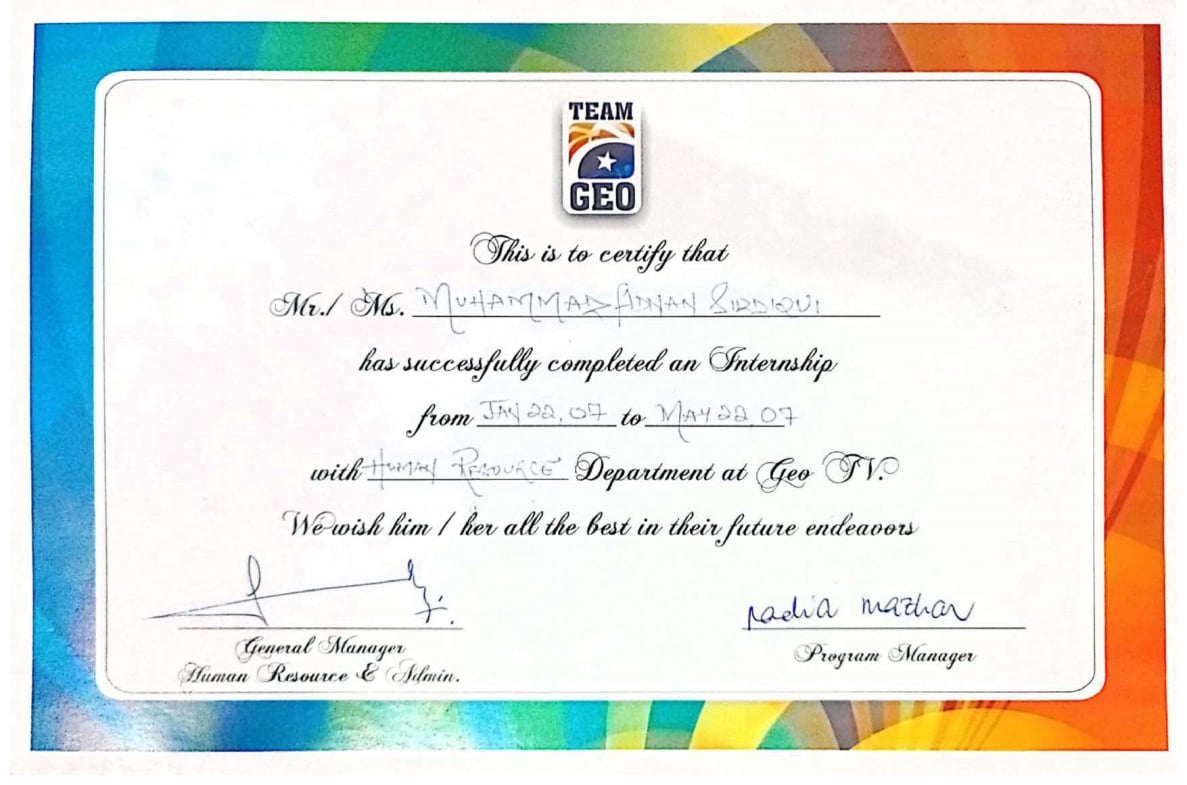 TEAM
GEO
This is to certify that
Mr./ Ms. MUHAMMAD ADNAN SIDDIQUI
has successfully completed an Internship
from JAN 22, 07 to MAY 22, 07
with HUMAN RESOURCE Department at Geo TV.
We wish him / her all the best in their future endeavors
nadia mazhar
General Manager
Program Manager
Human Resource & Admin.